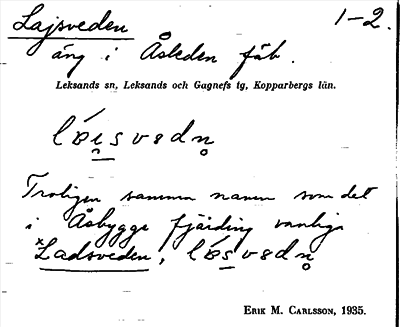 Lajsveden 1-2.
äng i Åsleden fäb.
Leksands sn, Leksands och Gagnefs tg, Kopparbergs län.
Troligen samma namn som det
i Åsbygge fjärding vanliga
*Ladsveden,
ERIK M. CARLSSON, 1935.